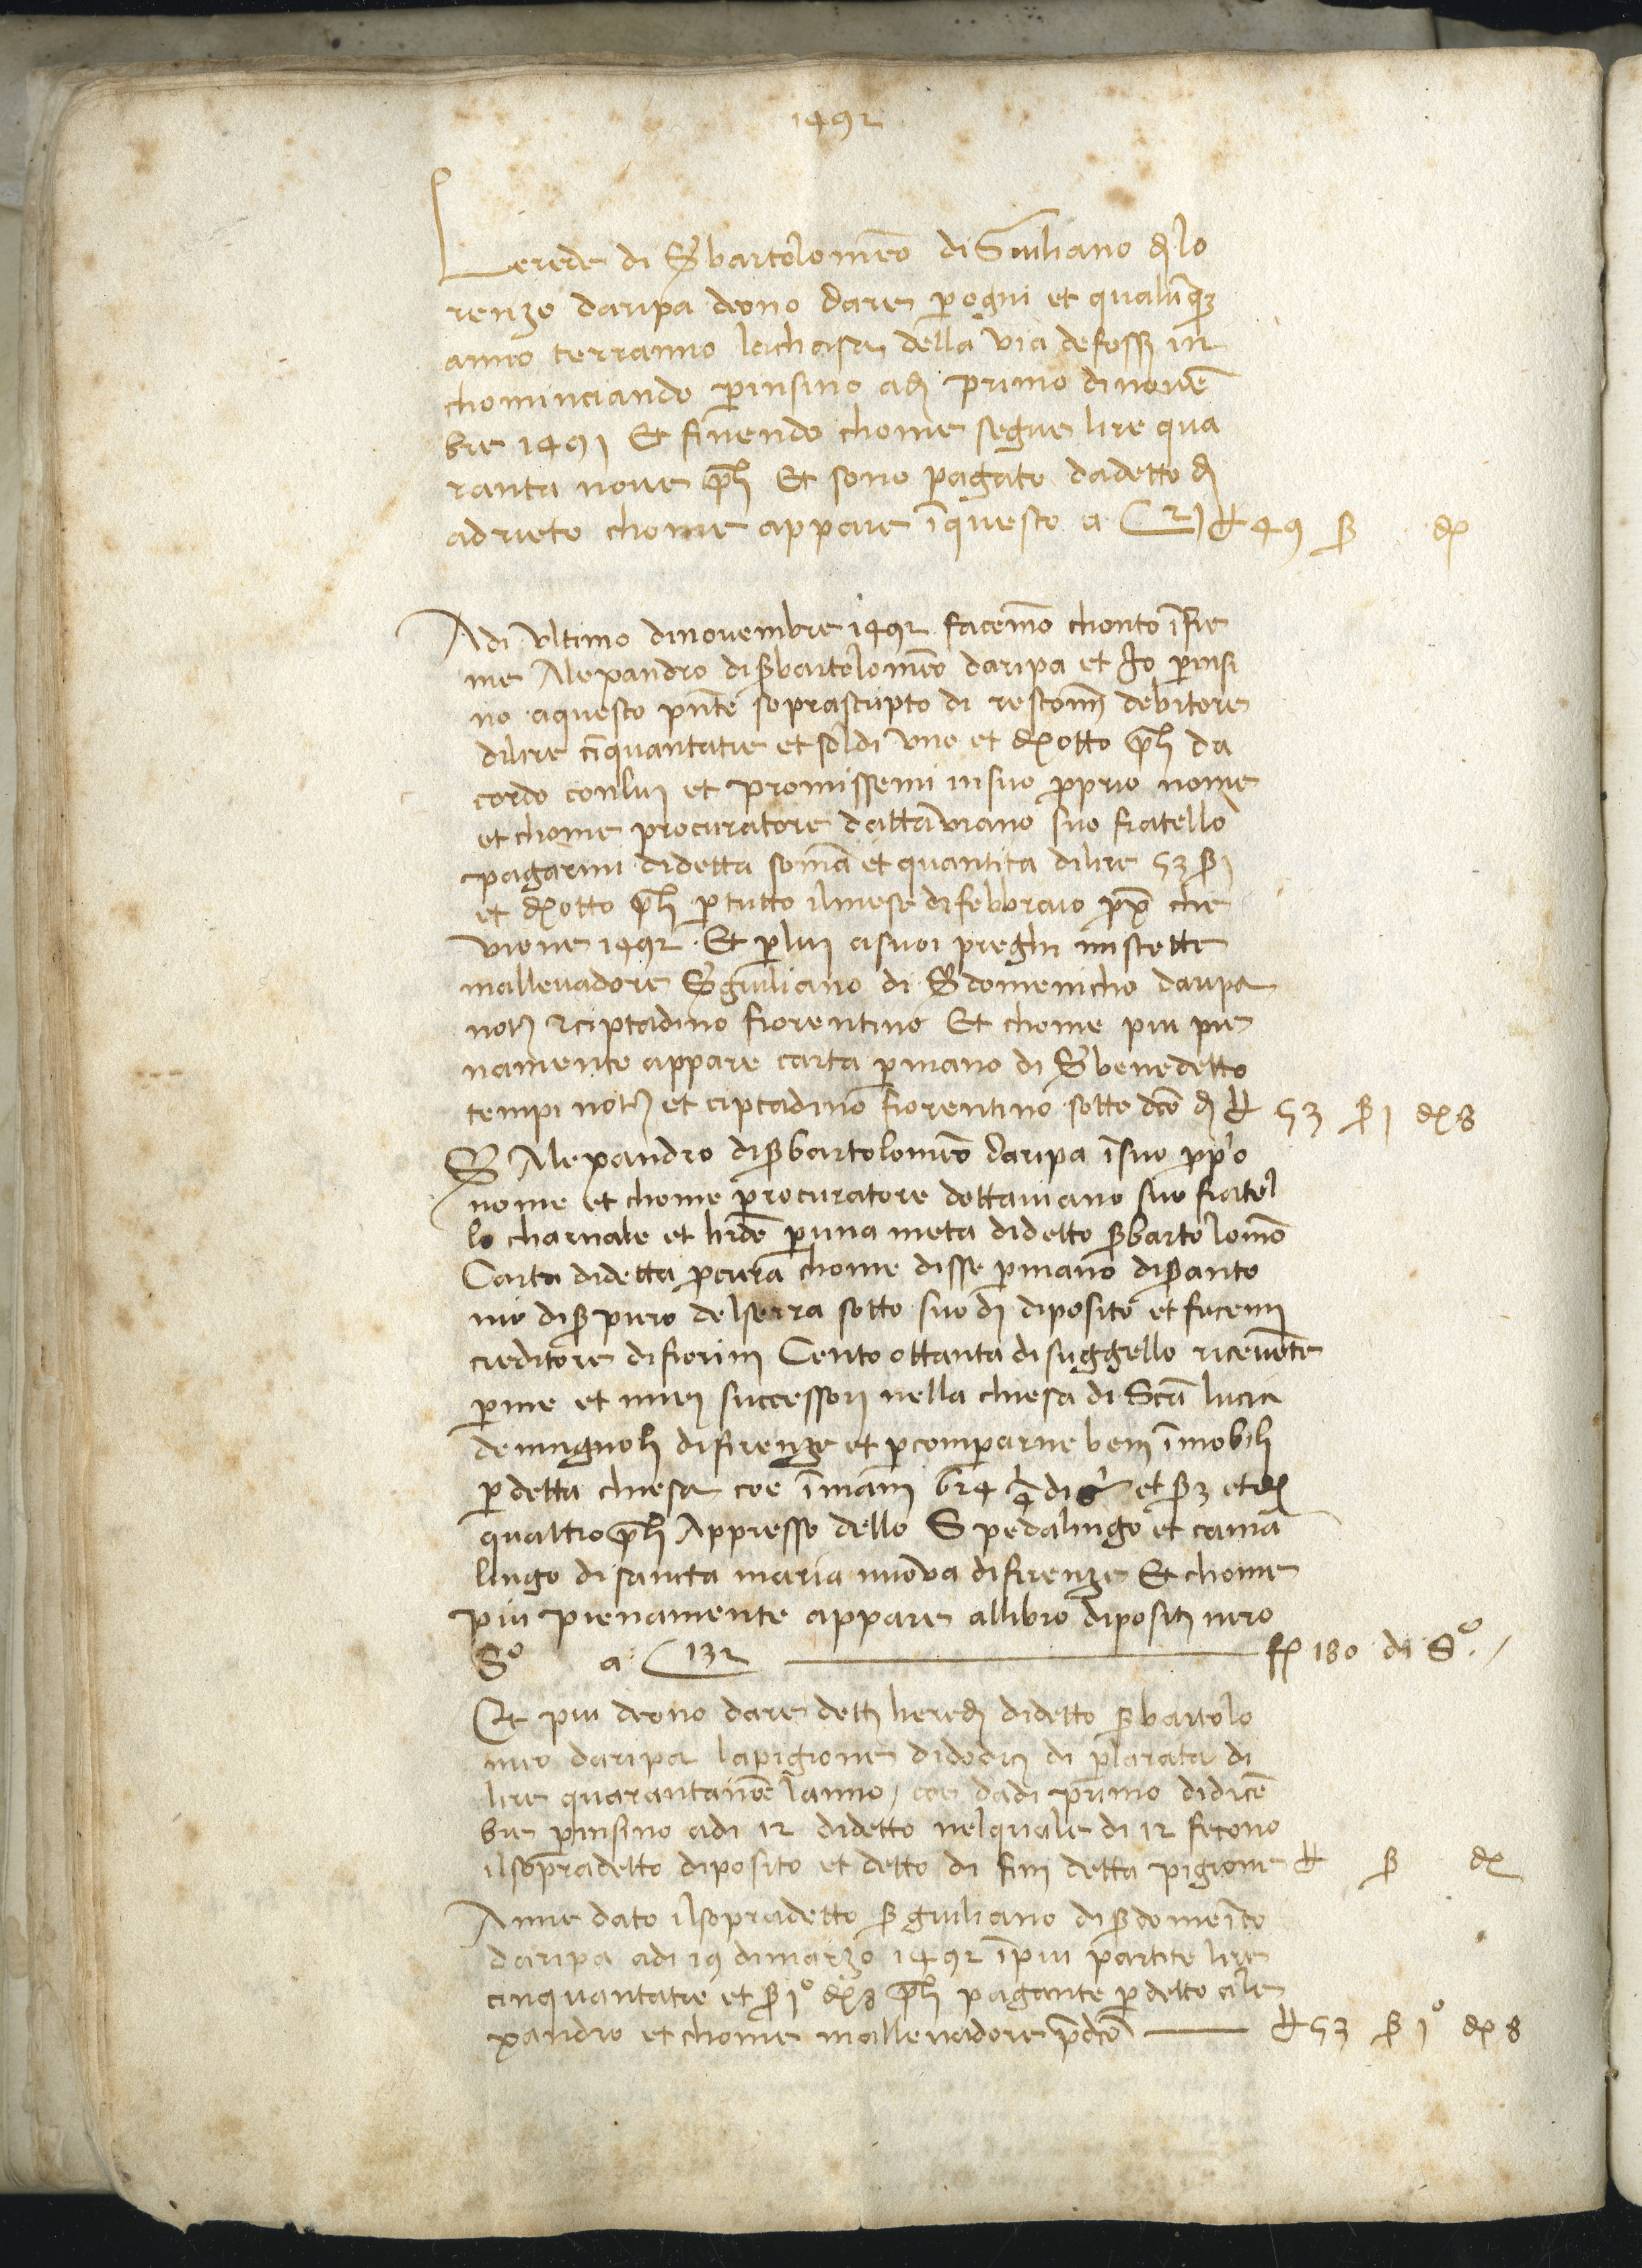 1492
Lerede di S bartolomeo di Giuliano di lo
renzo daripa deono dare per ogni et qualunq3
anno terranno lachasa della via defossi in
chominciando perinsino adi primo dinouē
bre 1491 Et finendo chome segue lire qua
ranta noue p̄li Et sono pagate dadetto dì
adrieto chome appare īquesto a C 21 ₶ 49 β dξ
Adi vltimo dinouembre 1492 facemo chonto īsie
me Alexandro dis bartolomeo daripa et Io perinsi
no aquesto pn̄te soprascripto di restomi debitore
dilire cinquantatre et soldi vno et dξ otto p̄li da
cordo conlui et promissemi insuo proprio nome
et chome procuratore dattauiano suo fratello
pagarmi didetta somā et quantita dilire 53 β 1
et dξ otto p̄li per tutto ilmese difebbraio prox̄ che
viene 1492 . Et perlui asuoi preghi mistette
malleuadore S giuliano di S domenicho daripa
not̄ 2 ciptadino fiorentino Et chome piu pie
namente appare carta per mano di S benedetto
tempi not̄ et ciptadino fiorentino sotto dc̄o dì ₶ 53 β 1 dξ 8
S Alexandro dis bartolomeo daripa īsuo pp̄o
nome et chome procuratore dottauiano suo fratel
lo charnale et hr̄de per una meta didetto s bartolomeo
Carta didetta procura chome disse per mano dis anto
nio dis piero delserra sotto suo dì diposito et fecemi
creditore difiorini Cento ottanta di suggello riceuēte
per me et miei successori nella chiesa di Scā lucia
demagnoli difirenze et per comperarne beni īmobili
per detta chiesa coe īmani 624 1/4 di et β 3 et dξ
quattro p̄li Appresso dello Spedalingo et cama
lingo di sancta maria nuoua difirenze Et chome
piu pienamente appare allibro dipositi nero
So a C 132 fξ 180 di So.
Et piu deono dare detti heredi didetto s bartolo
meo daripa lapigione didodici dì per larata di
lire quarantanoue lanno, coe dadi primo didicē
bre perinsino adi 12 didetto nelquale di 12 fecono
ilsopradetto diposito et detto di fini detta pigione ₶ β dξ
Anne dato ilsopradetto s giuliano dis domenico
daripa adi 19 dimarzo 1492 īpiu partite lire
cinquantatre et β 1o dξ 8 p̄li pagante per detto ale
xandro et chome malleuadore p̄dc̄o ₶ 53 β 1o dξ 8